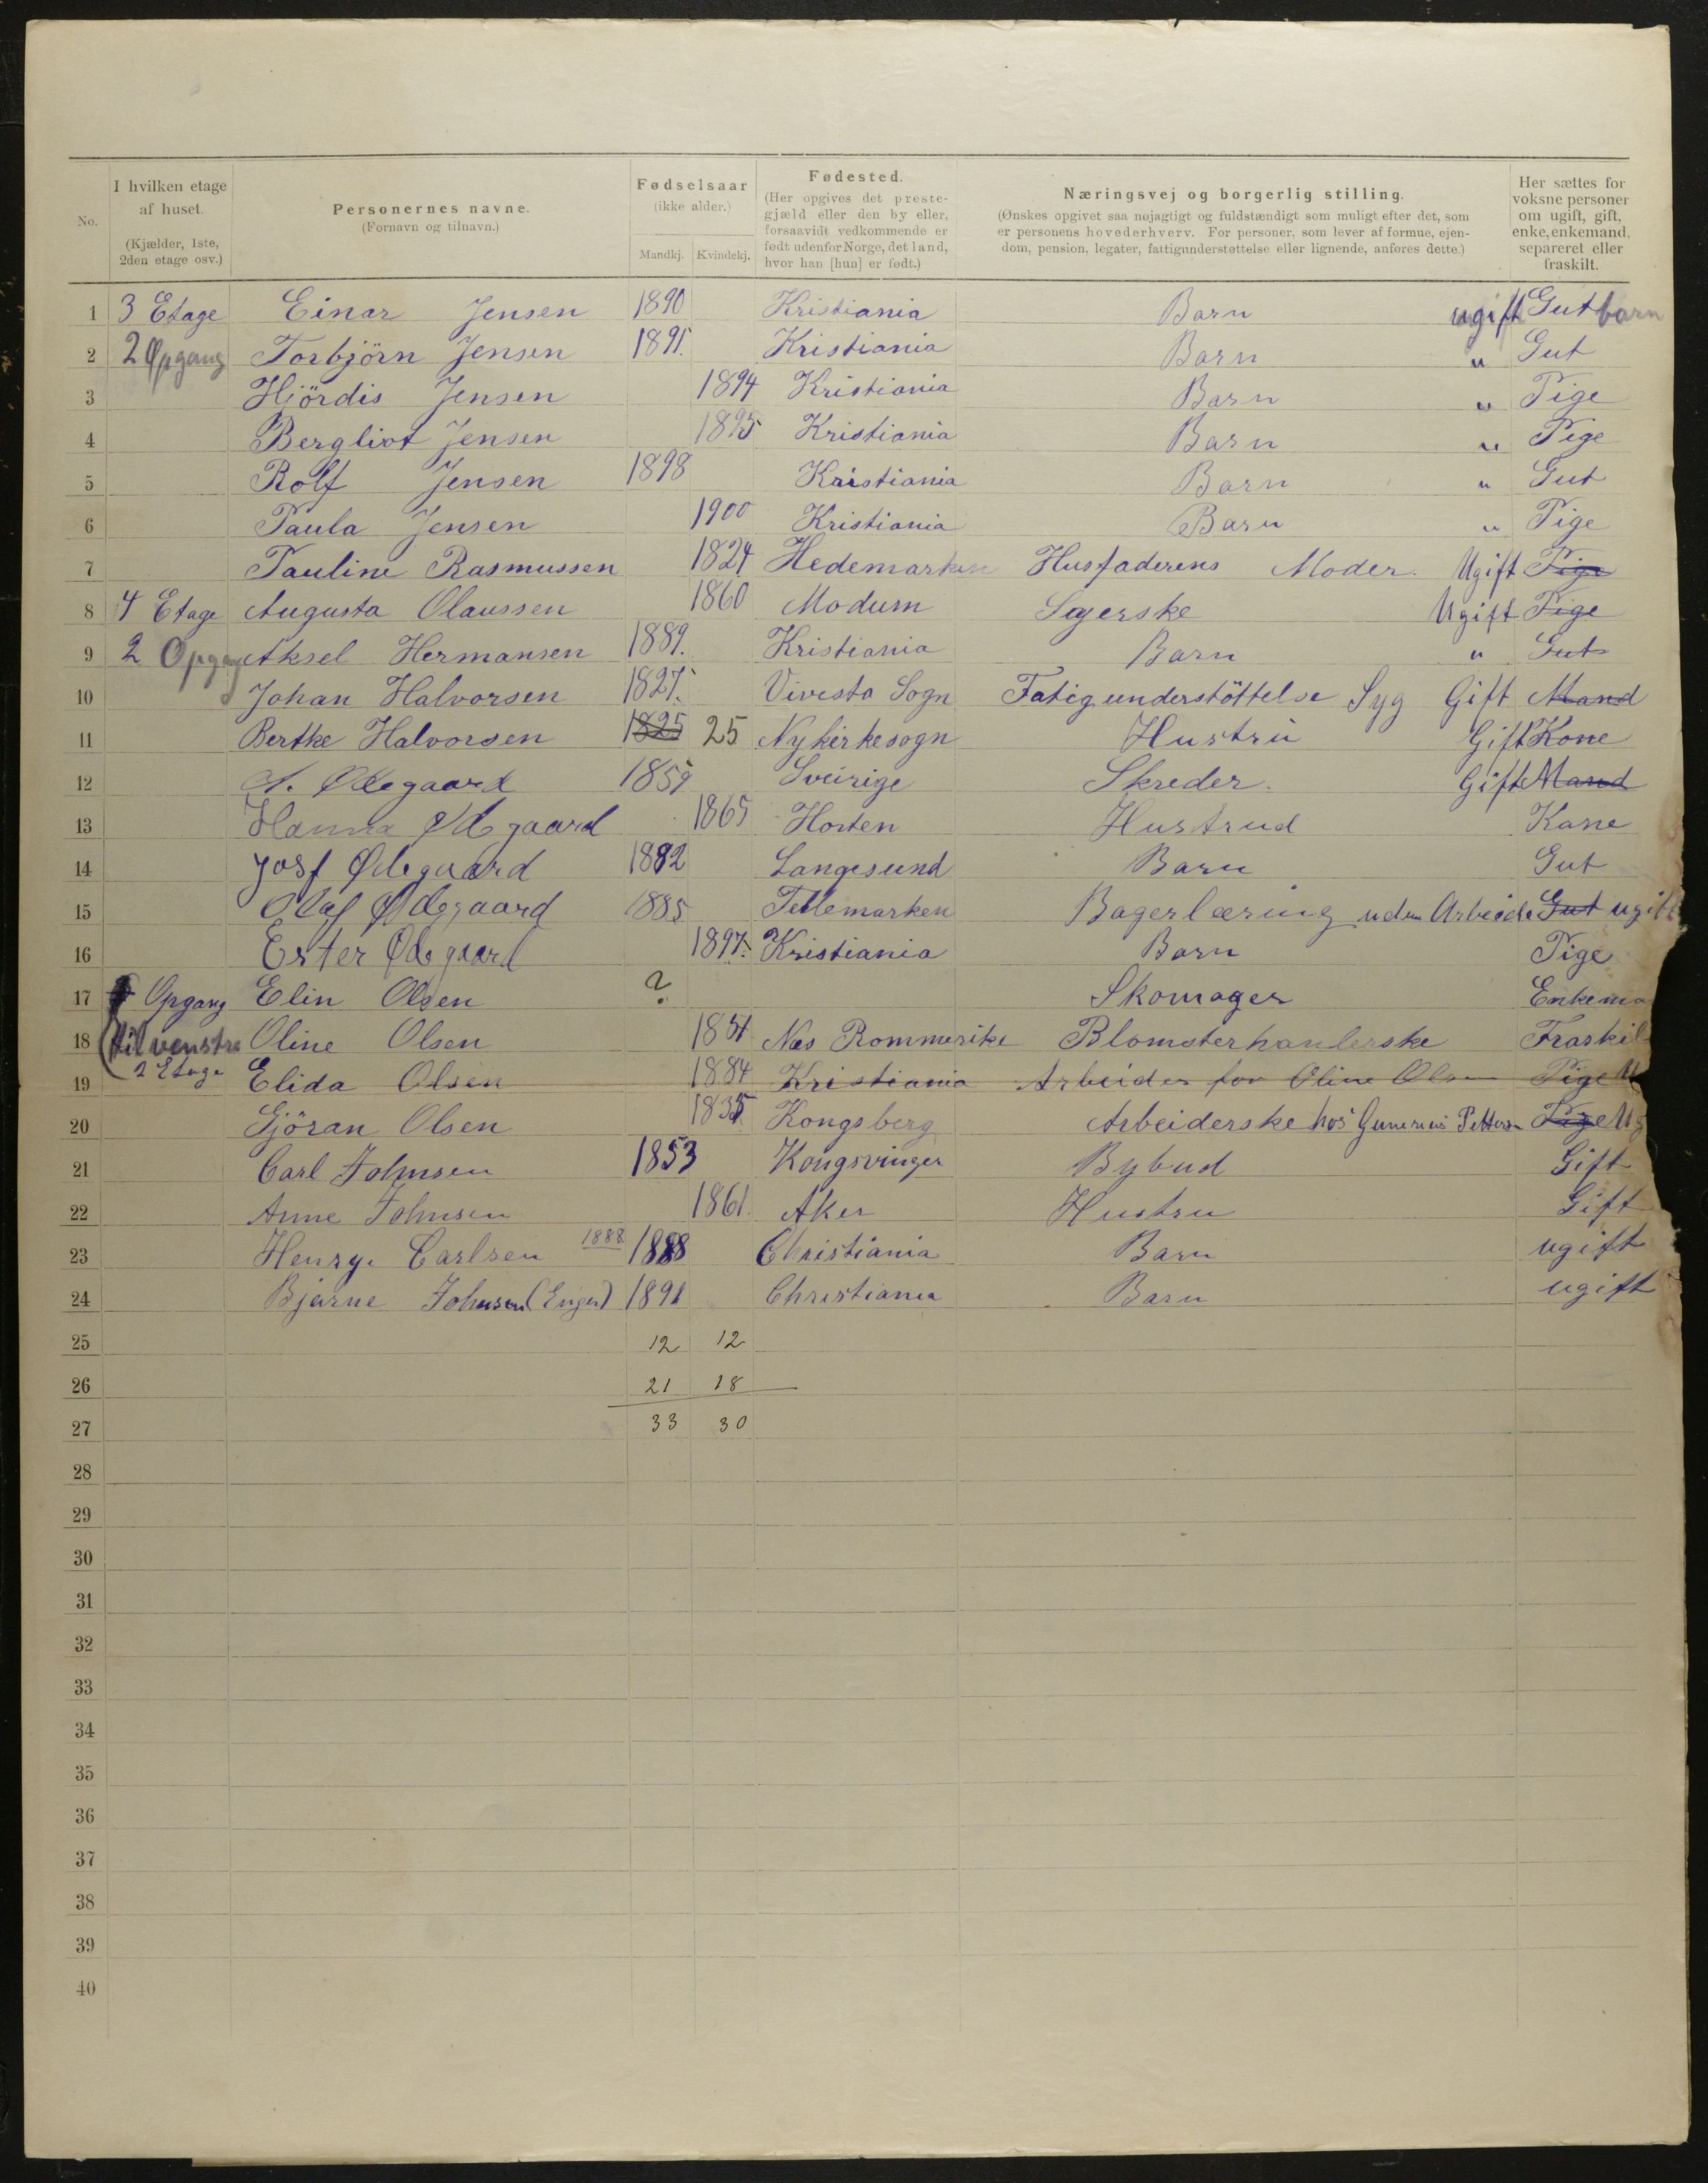 No.
I hvilken etage af huset. (Kjælder, 1ste, 2den etage osv.)
Personernes navne. (Fornavn og tilnavn.)
Fødselsaar (ikke alder.) Mandkj. Kvindekj.
Fødested. (Her opgives det prestegjæld eller den by eller, forsaavidt vedkommende er født udenfor Norge, det land, hvor han [hun] er født.)
Næringsvej og borgerlig stilling. (Ønskes opgivet saa nøjagtigt og fuldstændigt som muligt efter det, som er personens hovederhverv. For personer, som lever af formue, ejendom, pension, legater, fattigunderstøttelse eller lignende, anføres dette.)
Her sættes for voksne personer om ugift, gift, enke, enkemand, separeret eller fraskilt.
1 3 Etage Einar Jensen 1890 Kristiania Barn ugift Gut barn
2 2 Opgang Torbjörn Jensen 1891. Kristiania Barn " Gut
3 Hjördis Jensen 1894 Kristiania Barn " Pige
4 Bergliot Jensen 1895 Kristiania Barn " Pige
5 Rolf Jensen 1898 Kristiania Barn " Gut
6 Paula Jensen 1900 Kristiania Barn " Pige
7 Pauline Rasmussen 1824 Hedemarken Husfaderens Moder. Ugift Pige
8 4 Etage Augusta Olaussen 1860 Modum Syerske Ugift Pige
9 2 Opgang Aksel Hermansen 1889. Kristiania Barn " Gut
10 Johan Halvorsen 1827. Vivesta Sogn Fatigunderstöttelse Syg Gift Mand
11 Berthe Halvorsen 1825 25 Nykirkesogn Hustru Gift Kone
12 Ødegaard 1859 Sveirige Skreder. Gift Mand
13 Hanna Ødegaard 1865 Horten Hustrud Kane
14 Josf Ødegaard 1882 Langesund Barn Gut
15 Olaf Ødegaard 1885 Tellemarken Bagerlæring uden Arbeide Gut ugift
16 Ester Ødegaard 1897. Kristiania Barn Pige
17 Opgang Elin Olsen ? Skomager Enkema
18 til venstre Oline Olsen Næs Rommerike Blomsterhanlerske Fraskil
19 2 Etage Elida Olsen 1884 Kristiania Arbeider for Oline Olsen Pige U
20 Gjöran Olsen 1835 Kongsberg Arbeiderske hos Gunerius Petterson Pige Ug
21 Carl Johnsen 1853 Kongsvinger Bybud Gift
22 Anne Johnsen 1861. Aker Hustru Gift
23 Henry. Carlsen 1888 1888 Christiania Barn ugift
24 Bjarne Johnsen (Enger) 1891 Christiania Barn ugift
25 12 12
26 21 18
27 33 30
28
29
30
31
32
33
34
35
36
37
38
39
40